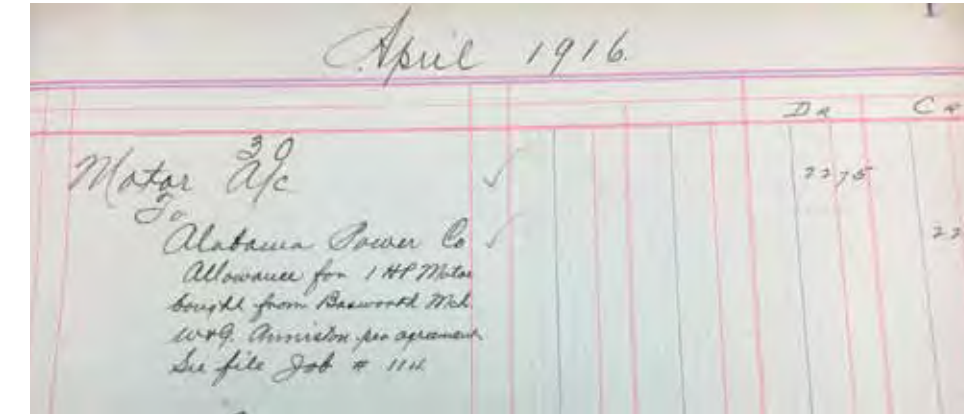 April 1916.
DR CR
30
Motor A/c ✓ 22 75
To
Alabama Power Co ✓ 22
Allowance for 1 HP Motor
bought from Mch.
W&G. Anniston per agreement
See file Job #